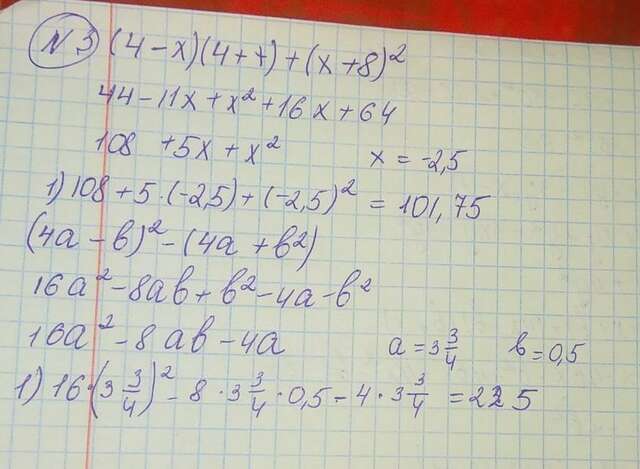 N 3 (4-x)(4++)+(x+8)²
44-11x+x²+16x+64
108 +5x+x² x=-2,5
1) 108+5·(-2,5)+(-2,5)²=101,75
(4a-b)²-(4a+b²)
16a²-8ab+b²-4a-b²
16a²-8ab-4a a=3 3/4 b=0,5
1) 16·(3 3/4)²-8·3 3/4·0,5-4·3 3/4=225